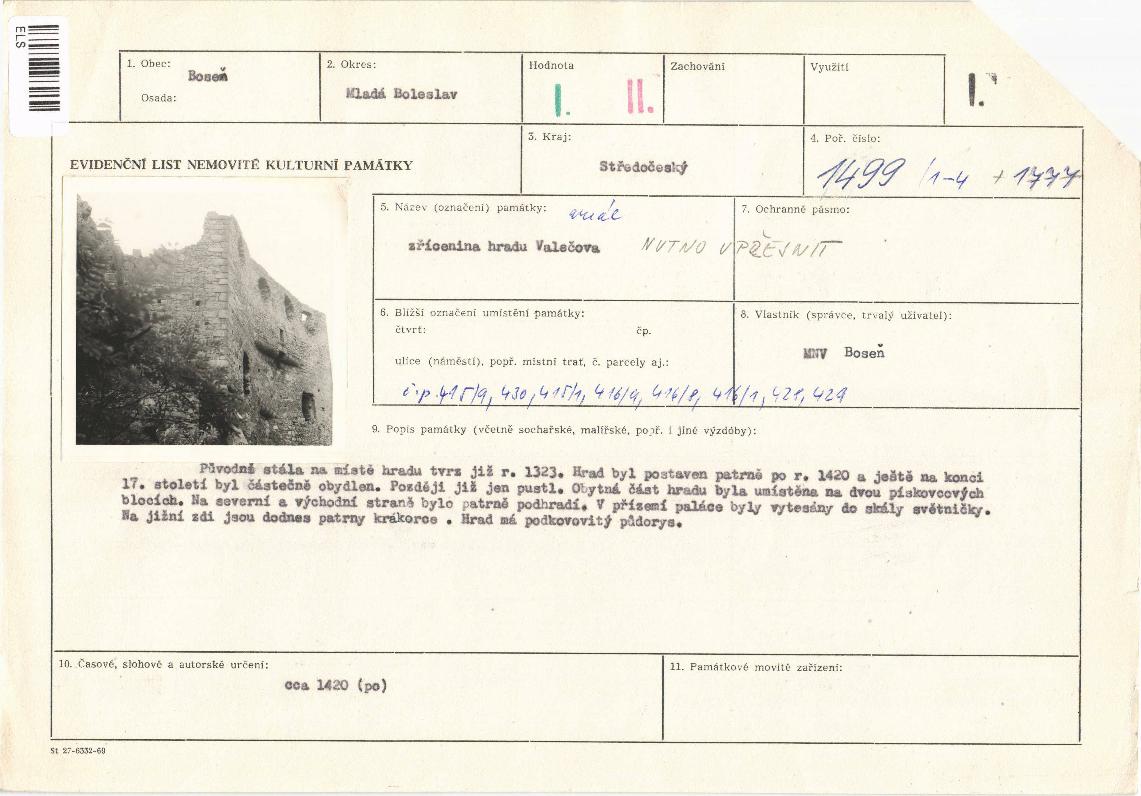 ELS
1. Obec:
Boseň
Osada:
2. Okres:
Mladá Boleslav
Hodnota
I. II.
Zachování
Využití
I.
EVIDENČNÍ LIST NEMOVITÉ KULTURNÍ PAMÁTKY
3. Kraj:
Středočeský
4. Poř. číslo:
1499 /1-4 + 1777
5. Název (označení) památky: areál
zřícenina hradu Valečova NUTNO UPŘESNIT
7. Ochranné pásmo:
6. Bližší označení umístění památky:
čtvrť: čp.
ulice (náměstí), popř. místní trať, č. parcely aj.:
č.p. 415/9, 430, 415/1, 416/9, 416/8, 416/1, 421, 429
8. Vlastník (správce, trvalý uživatel):
MNV Boseň
9. Popis památky (včetně sochařské, malířské, popř. i jiné výzdoby):
Původně stála na místě hradu tvrz již r. 1323. Hrad byl postaven patrně po r. 1420 a ještě na konci
17. století byl částečně obydlen. Později již jen pustl. Obytná část hradu byla umístěna na dvou pískovcových
blocích. Na severní a východní straně bylo patrně podhradí. V přízemí paláce byly vytesány do skály světničky.
Na jižní zdi jsou dodnes patrny krákorce . Hrad má podkovovitý půdorys.
10. Časové, slohové a autorské určení:
cca 1420 (po)
11. Památkové movité zařízení:
St 27-6332-69